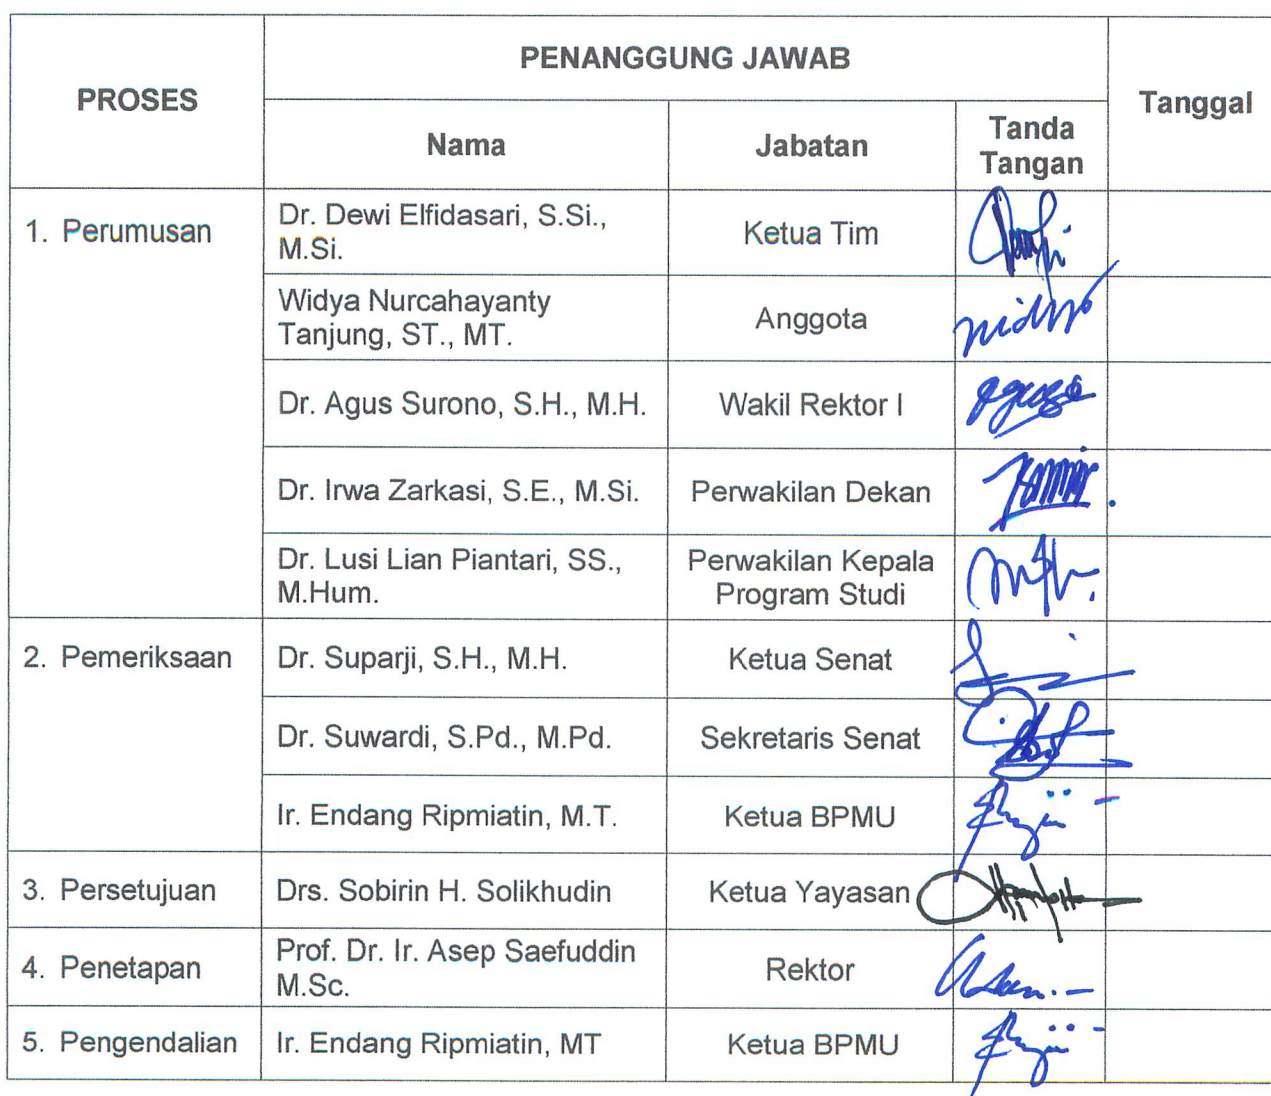 PROSES
PENANGGUNG JAWAB
Tanggal
Nama
Jabatan
Tanda
Tangan
1. Perumusan
Dr. Dewi Elfidasari, S.Si.,
M.Si.
Ketua Tim
Widya Nurcahayanty
Tanjung, ST., MT.
Anggota
Dr. Agus Surono, S.H., M.H.
Wakil Rektor I
Dr. Irwa Zarkasi, S.E., M.Si.
Perwakilan Dekan
Dr. Lusi Lian Piantari, SS.,
M.Hum.
Perwakilan Kepala
Program Studi
2. Pemeriksaan
Dr. Suparji, S.H., M.H.
Ketua Senat
Dr. Suwardi, S.Pd., M.Pd.
Sekretaris Senat
Ir. Endang Ripmiatin, M.T.
Ketua BPMU
3. Persetujuan
Drs. Sobirin H. Solikhudin
Ketua Yayasan
4. Penetapan
Prof. Dr. Ir. Asep Saefuddin
M.Sc.
Rektor
5. Pengendalian
Ir. Endang Ripmiatin, MT
Ketua BPMU